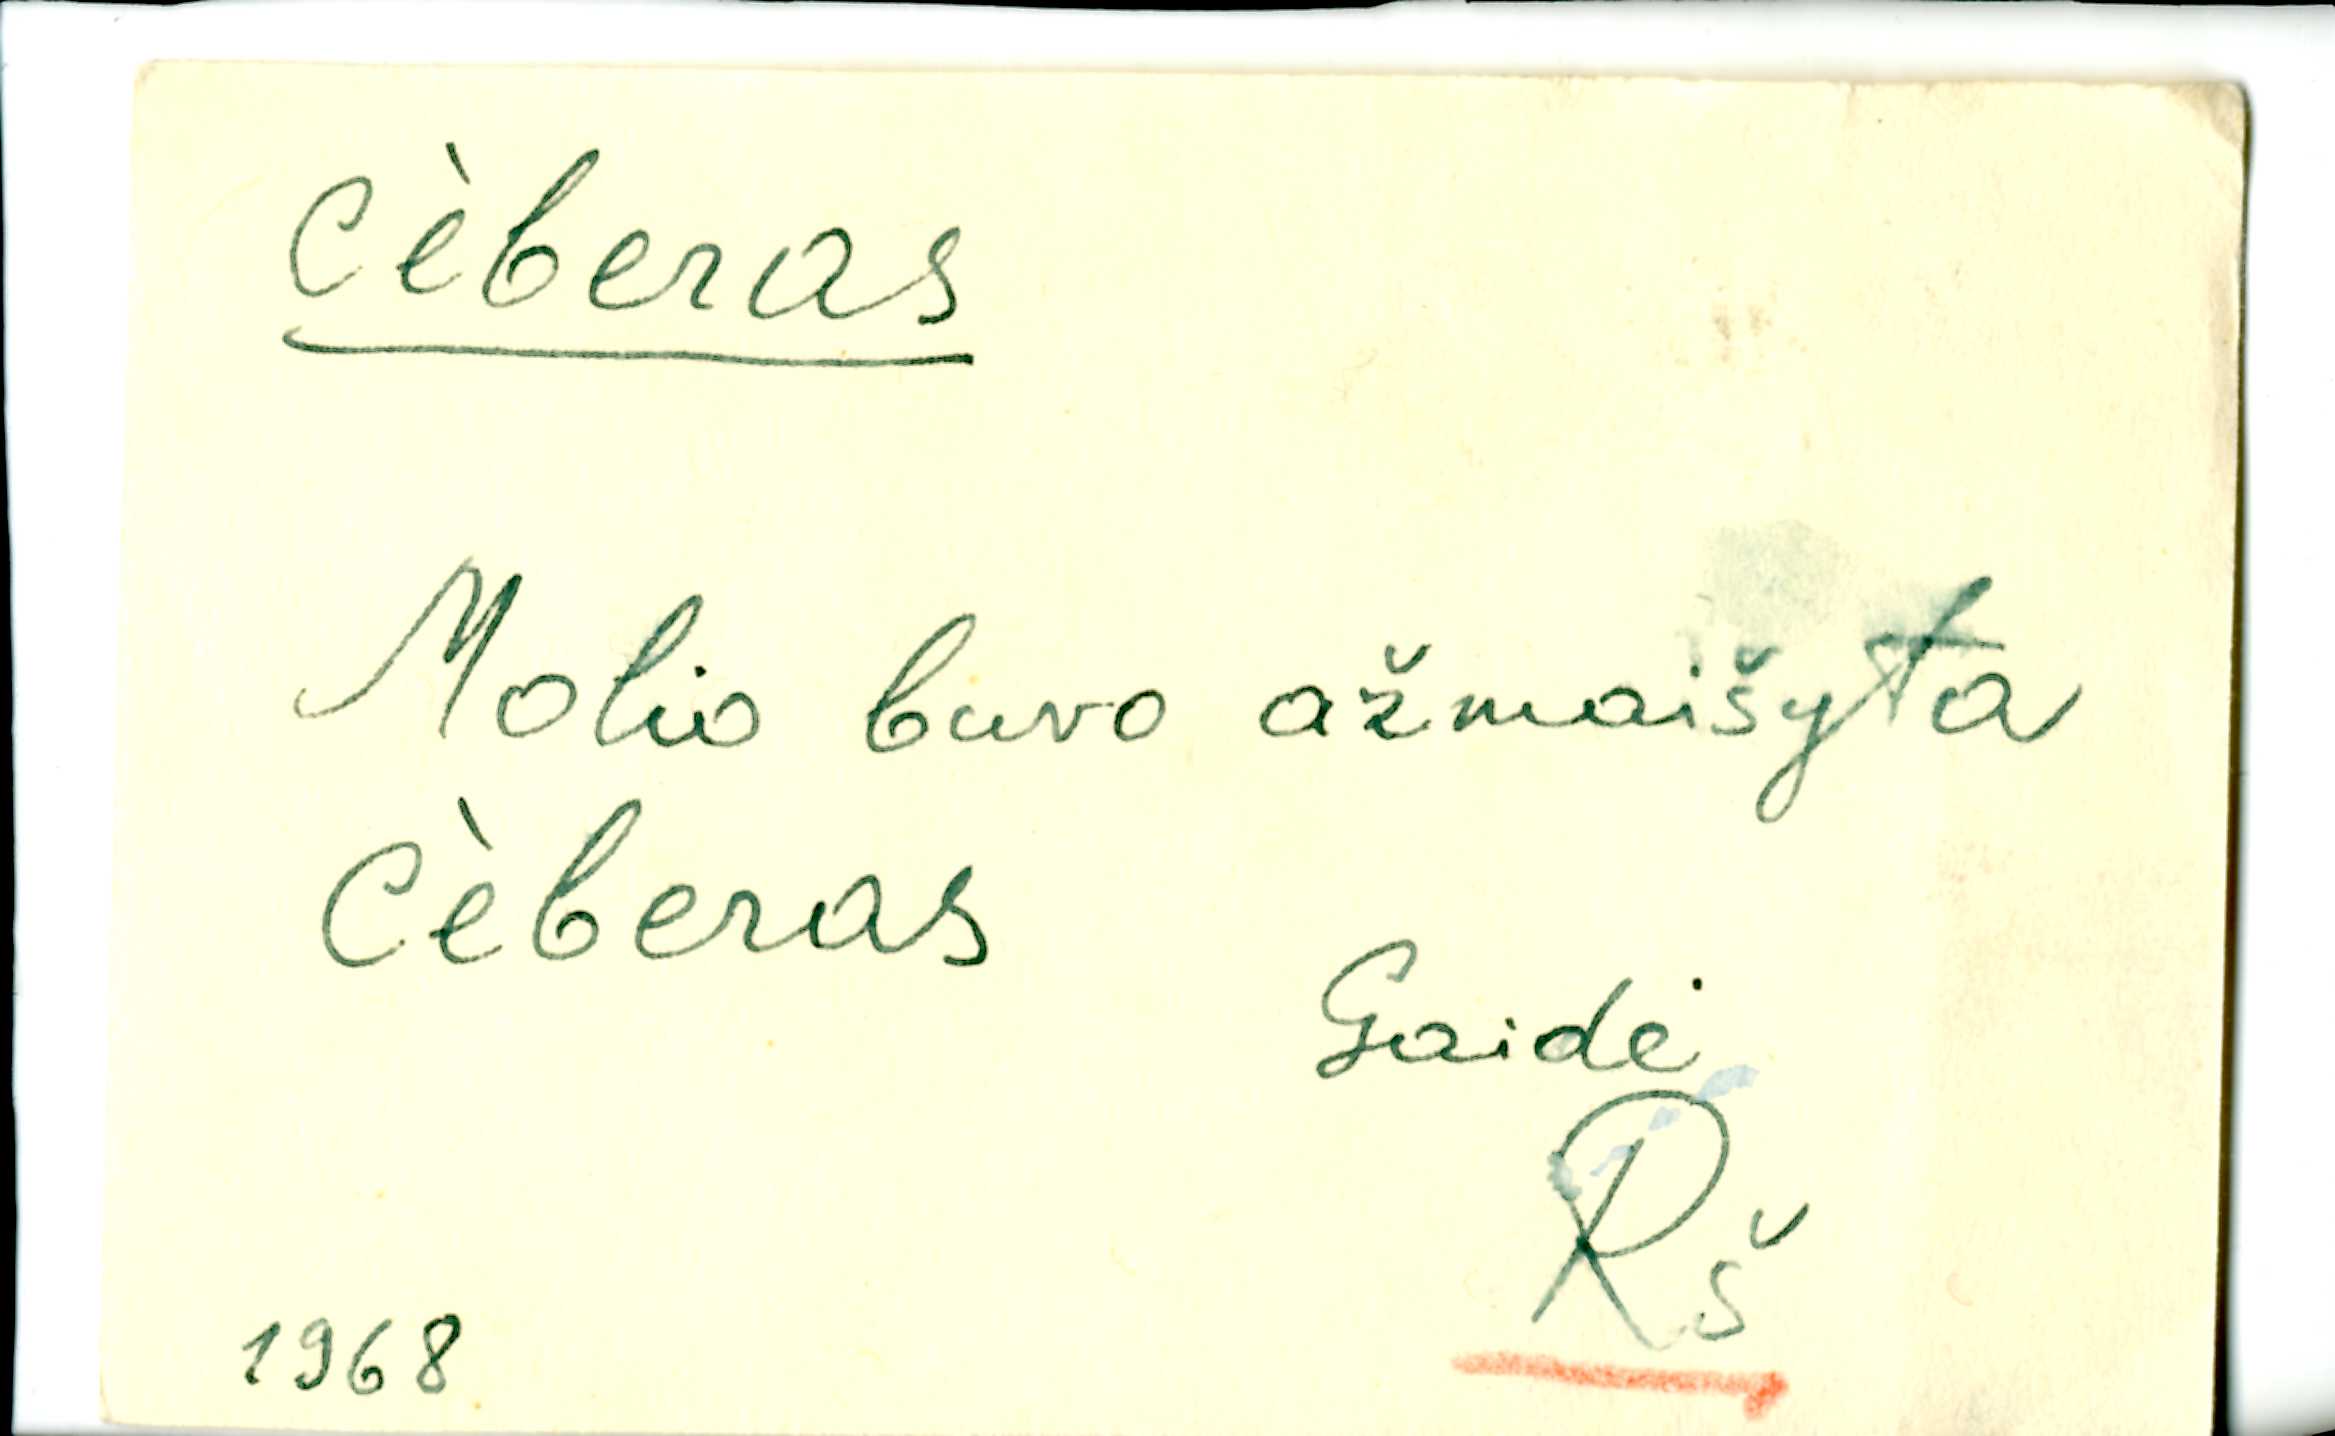 cèberas
Molio buvo ažmaišyta
cèberas
Gaidė
Rš
1968